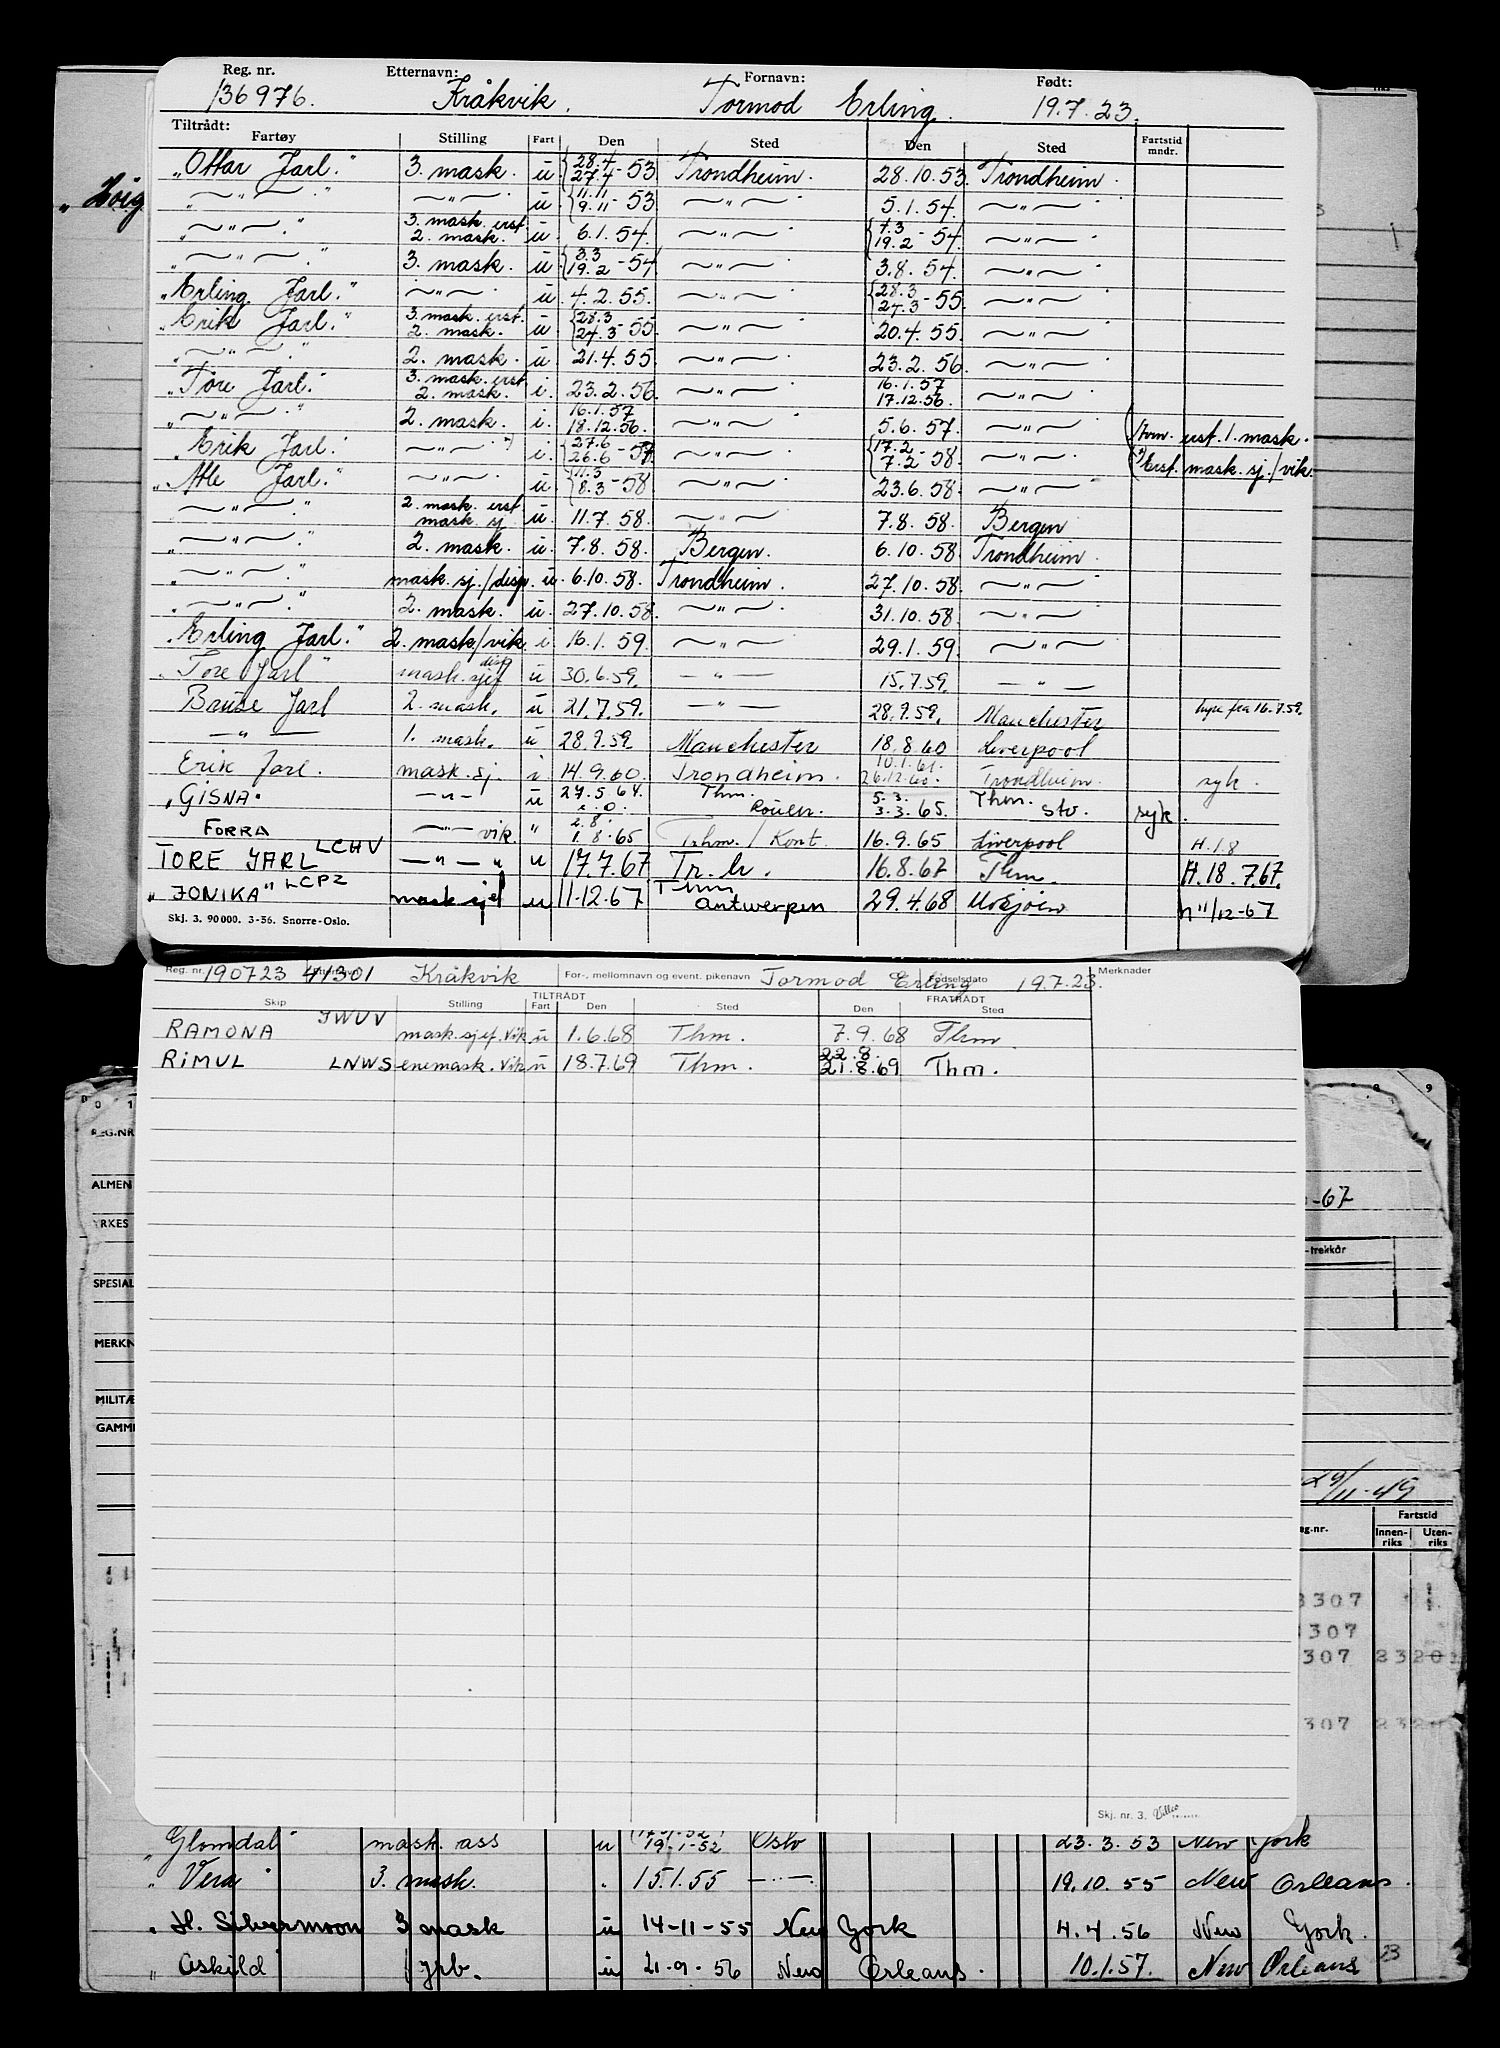 Reg. nr. Etternavn: Fornavn: Født:
136976. Kråkvik. Tormod Erling. 19.7.23.
Tiltrådt:
Fartøy Stilling Fart Den Sted Den Sted Fartstid mndr.
"Ottar Jarl." 3. mask. u {28.4 27.4-53 Trondheim. 28.10.53. Trondheim.
" — " — " — " — u {11.11 9.11-53 — " — 5.1.54. — " —
" — " — " 3. mask. erst. 2. mask. u. 6.1.54. — " — {7.3 19.2-54. — " —
" — " — " 3. mask. u {3.3 19.2-54 — " — 3.8.54. — " —
"Erling Jarl." — " — u 4.2.55. — " — {28.3 27.3-55. — " —
"Erik Jarl." 3. mask. erst. 2. mask. u {28.3 24.3-55. — " — 20.4.55. — " —
" — " — " 2. mask. u 21.4.55. — " — 23.2.56. — " —
"Tore Jarl." 3. mask. erst 2. mask. i. 23.2.56. — " — 16.1.57 17.12.56. — " —
" — " — " 2. mask. i. 16.1.57 18.12.56. — " — 5.6.57. — " — erst. 1. mask.
"Erik Jarl." — " — *) i. {27.6 26.6-57. — " — {17.2 7.2-58. — " — *) Erst. mask. sj./vik.
"Atle Jarl." — " — u {11.3 8.3-58 — " — 23.6.58. — " —
" — " — " 2. mask. erst mask sj u. 11.7.58. — " — 7.8.58. Bergen
" — " — " 2. mask. u. 7.8.58. Bergen. 6.10.58 Trondheim.
" — " — " mask. sj./disp. u. 6.10.58. Trondheim. 27.10.58. — " —
" — " — " 2. mask. u. 27.10.58. — " — 31.10.58 — " —
"Erling Jarl." 2. mask/vik. i 16.1.59 — " — 29.1.59. — " —
"Tore Jarl" mask. sjef disp u 30.6.59. — " — 15.7.59. — " —
Bause Jarl 2. mask. u 21.7.59. — " — 28.9.59. Manchester hyre fra 16.7.59.
— " — 1. mask. u 28.9.59 Manchester 18.8.60 Liverpool
Erik Jarl. mask. sj. i 14.9.60. Trondheim. 10.1.61. 26.12.60. Trondheim. syk.
"GISNA" — " — u 27.5.64. Thm. Rouen. 5.3. 3.3.65. Thm. sto. syk.
FORRA — " — vik. " 2.8. 1.8.65 Trhm./Kont. 16.9.65 Liverpool H.1.8
TORE JARL LCHV — " — " u 17.7.67 Tr.h. 16.8.67 Thm. H.18.7.67.
"JONIKA" LCPZ mask sjef u 11-12.67 Thm Antwerpen 29.4.68 Mosjøen h 11/12-67
Skj. 3. 90000. 3-56. Snorre-Oslo.
Reg. nr. 190723 41301 Kråkvik For-, mellomnavn og event. pikenavn Tormod Erling Fødselsdato 19.7.23. Merknader
TILTRÅDT FRATRÅDT
Skip Stilling Fart Den Sted Den Sted
RAMONA JWUV mask. sjef. vik u 1.6.68 Thm. 7.9.68 Thm
RIMUL LNWS enemask. vik u 18.7.69 Thm. 22.8. 21.8.69 Thm.
Skj. nr. 3.
0 1 8 9
REG.NR
ALMEN
-67
YRKES
-trekkår
SPESIAL
MERKN
MILITÆ
GAMML
29/11-49
eg.nr. Fartstid
Innen-riks Uten-riks
3307
307
307 2320
307 232
"Glomdal" mask. ass u 19.1-52 Oslo 23.3.53 New York
"Vera" 3. mask. " 15.1.55 — " — 19.10.55 New Orleans.
" H. Silvermoon 3 mask u 14-11-55 New York 4.4.56 New York.
" Askild 1 yrb. u 21.9.56 New Orleans. 10.1.57. New Orleans 23